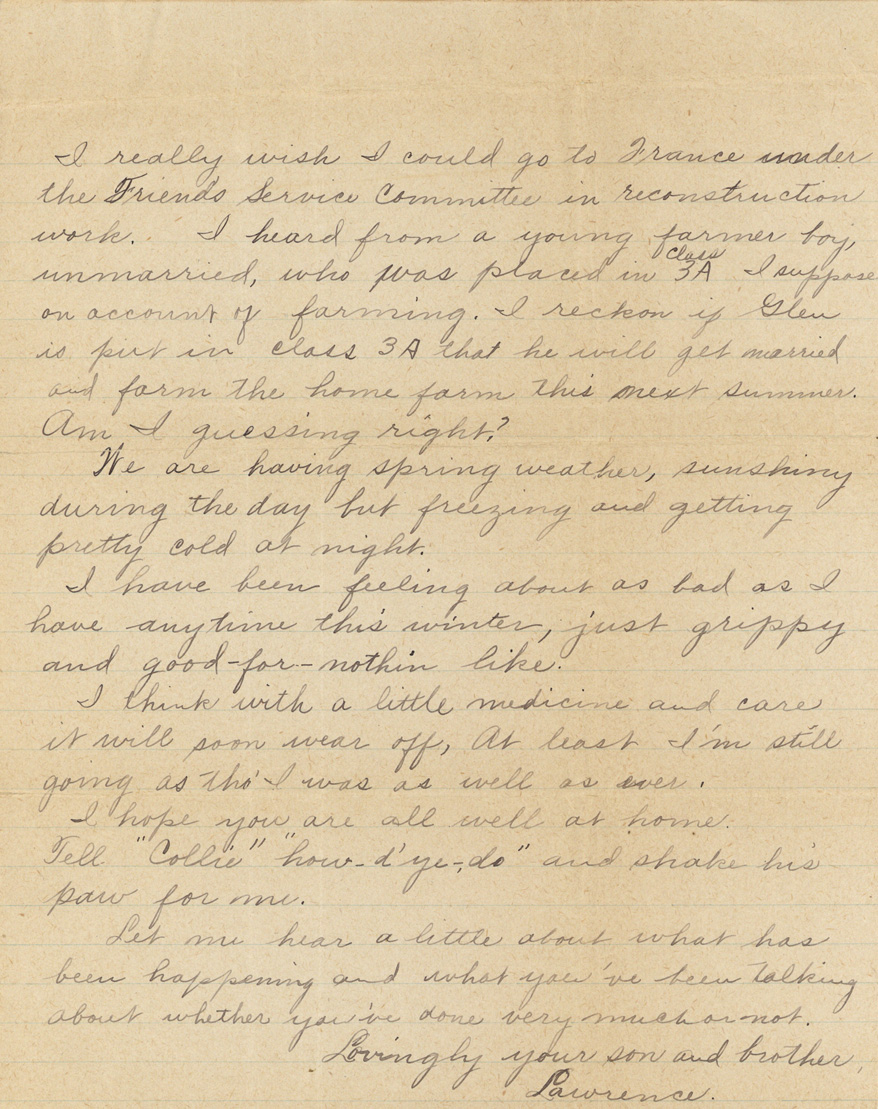 I really wish I could go to France under
the Friends Service Committee in reconstruction
work. I heard from a young farmer boy,
unmarried, who was placed in class 3A I suppose
on account of farming. I reckon if Glen
is put in class 3A that he will get married
and farm the home farm this next summer.
Am I guessing right?
We are having spring weather, sunshiny
during the day but freezing and getting
pretty cold at night.
I have been feeling about as bad as I
have anytime this winter, just grippy
and good-for-nothin like.
I think with a little medicine and care
it will soon wear off, At least I'm still
going as tho' I was as well as ever.
I hope you are all well at home.
Tell "Collie" "how-d'ye-do" and shake his
paw for me.
Let me hear a little about what has
been happening and what you've been talking
about whether you've done very much or not.
Lovingly your son and brother,
Lawrence.